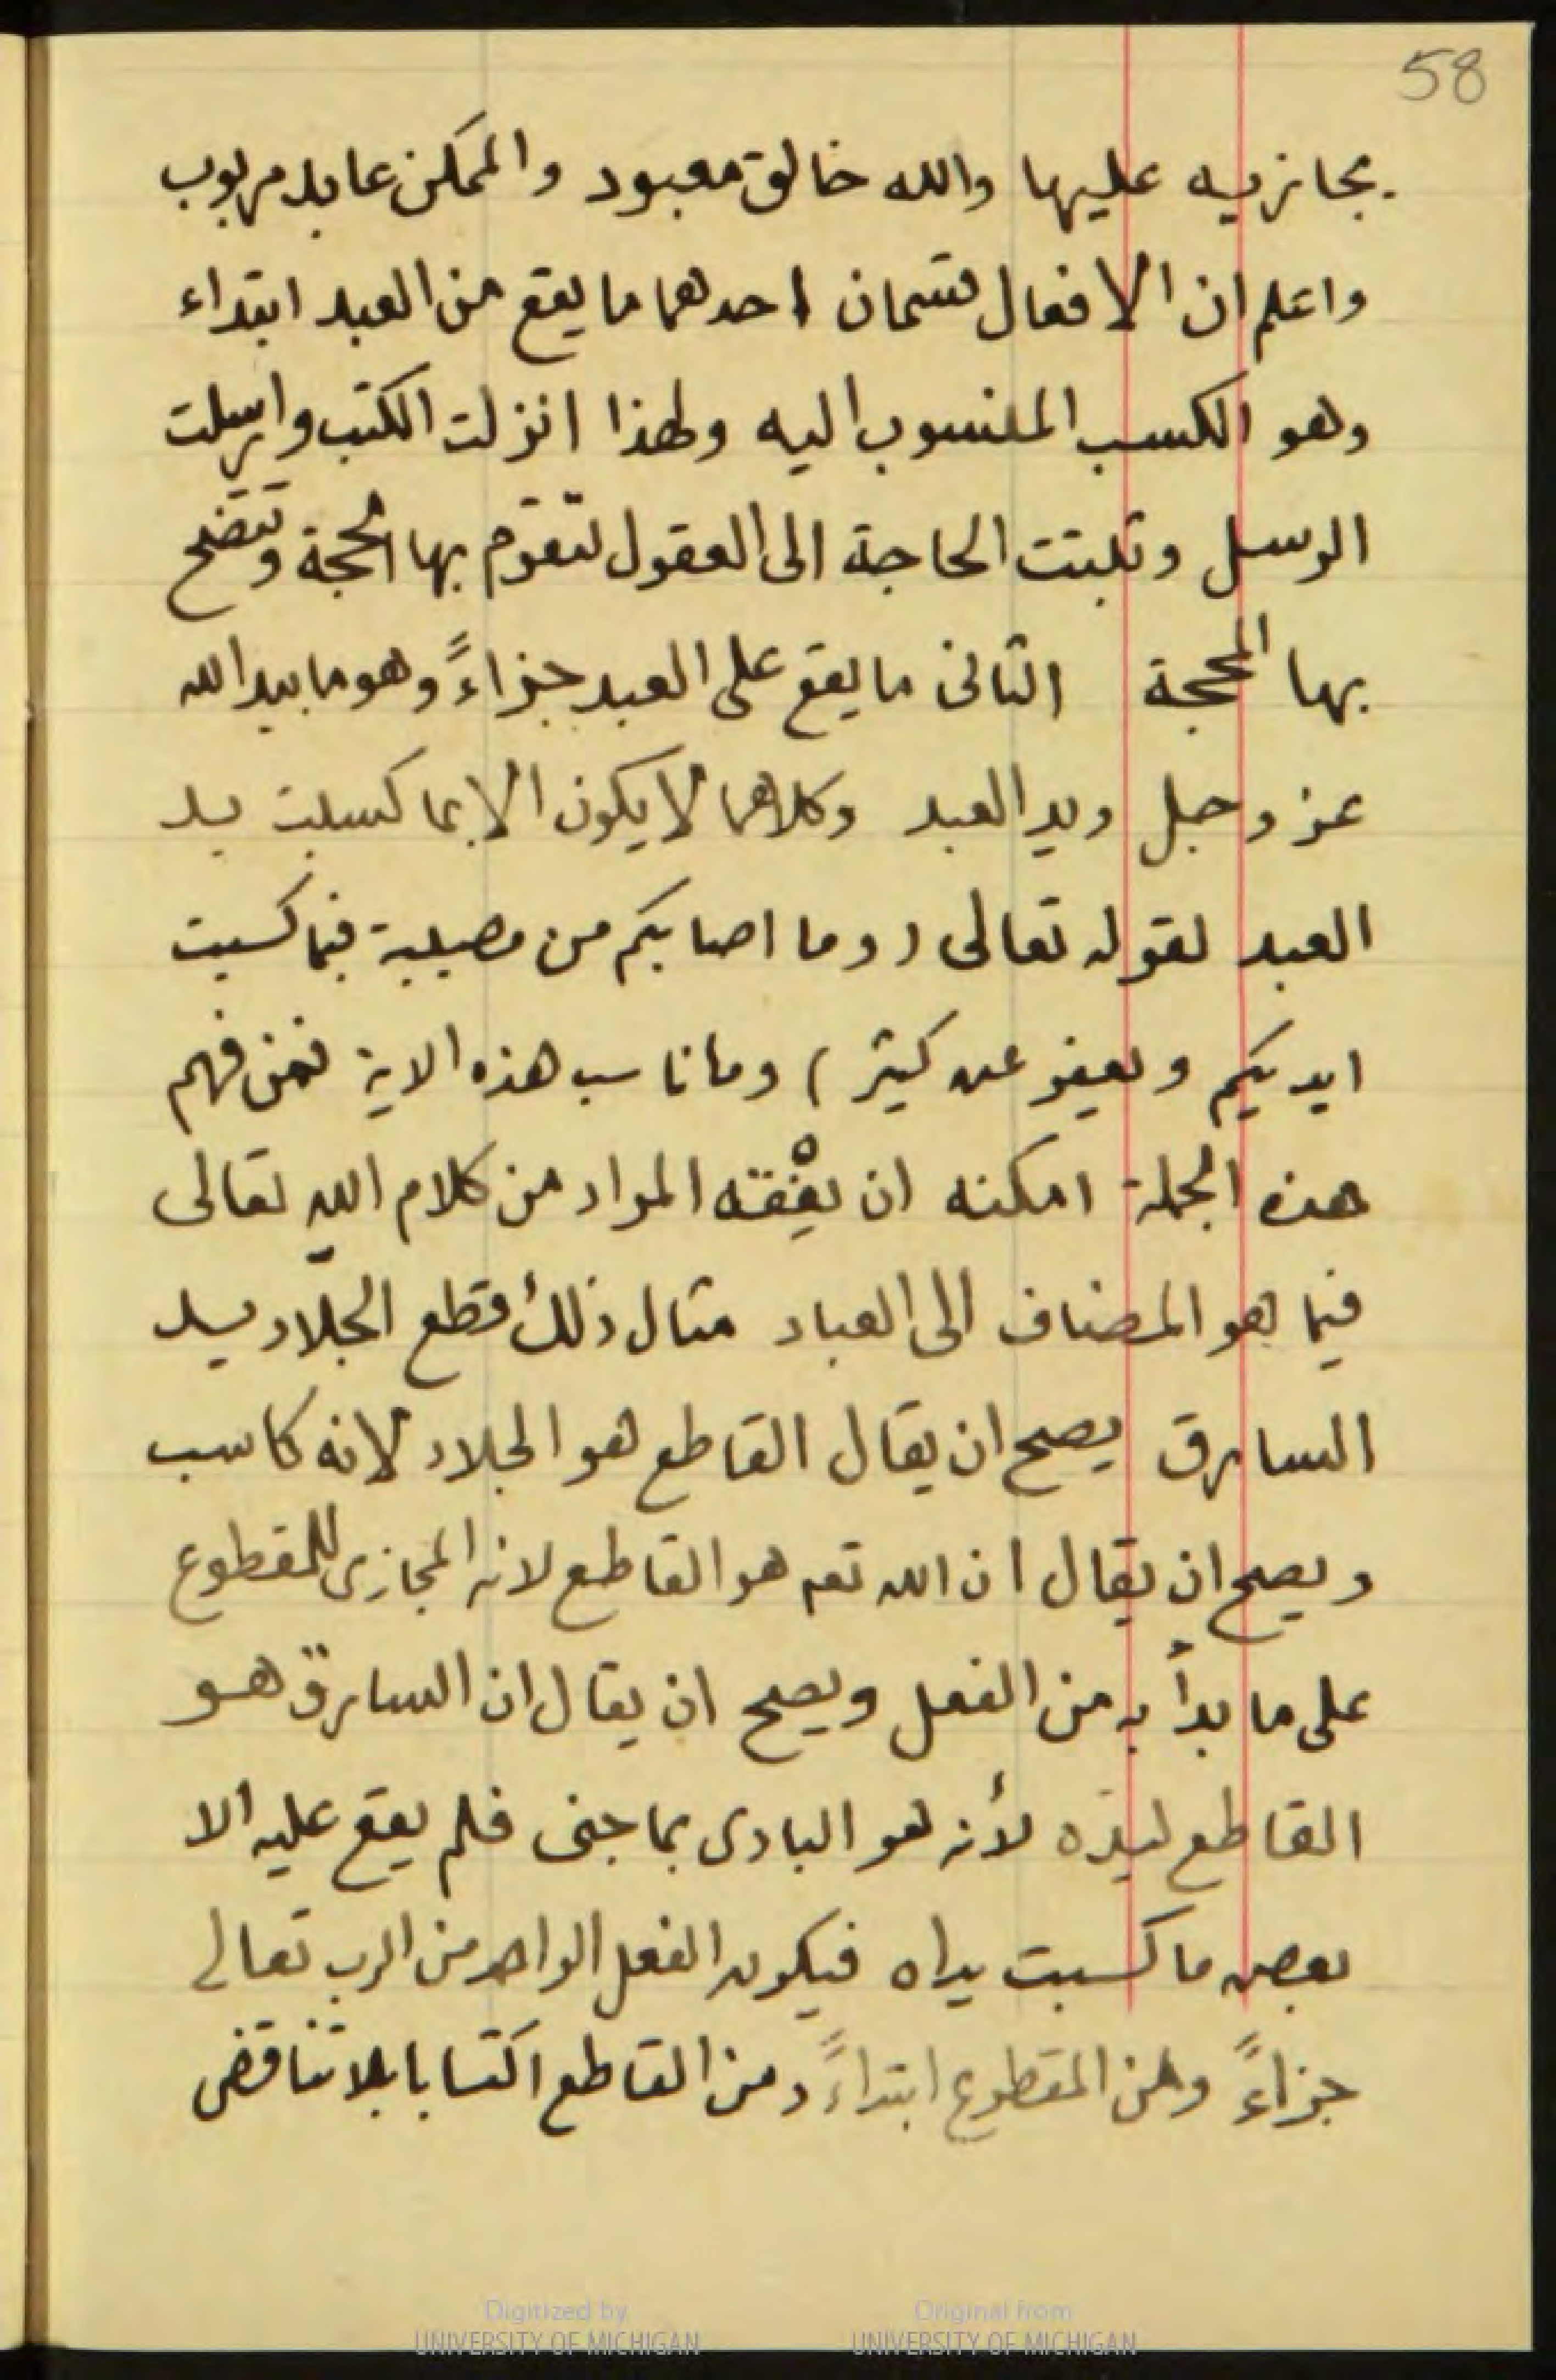 58
يجازيه عليها والله خالق معبود والممكن عابد مربوب
واعلم ان الافعال قسمان احدهما ما يقع من العبد ابتداء
وهو الكسب المنسوب اليه ولهذا انزلت الكتب وارسلت
الرسل وثبتت الحاجة الى العقول لتقوم بها الحجة وتتضح
بها المحجة الثانى ما يقع على العبد جزاءً وهو ما بيد الله
عز وجل ويد العبد وكلاهما لا يكون الا بما كسبت يد
العبد لقوله تعالى (وما اصابكم من مصيبة فبما كسبت
ايديكم ويعفو عن كثير) وما ناسب هذه الاية فمن فهم
هذه الجملة امكنه ان يفقه المراد من كلام الله تعالى
فيما هو المضاف الى العباد مثال ذلك قطع الجلاد يد
السارق يصح ان يقال القاطع هو الجلاد لانه كاسب
ويصح ان يقال ان الله تعم هو القاطع لانه المجازى للمقطوع
على ما بدأ به من الفعل ويصح ان يقال ان السارق هو
القاطع ليده لأنه هو البادى بما جنى فلم يقع عليه الا
بعض ما كسبت يداه فيكون الفعل الواحد من الرب تعالى
جزاءً ومن المقطوع ابتداءً ومن القاطع اكتسابا بلا تناقض
Digitized by
UNIVERSITY OF MICHIGAN
Original from
UNIVERSITY OF MICHIGAN